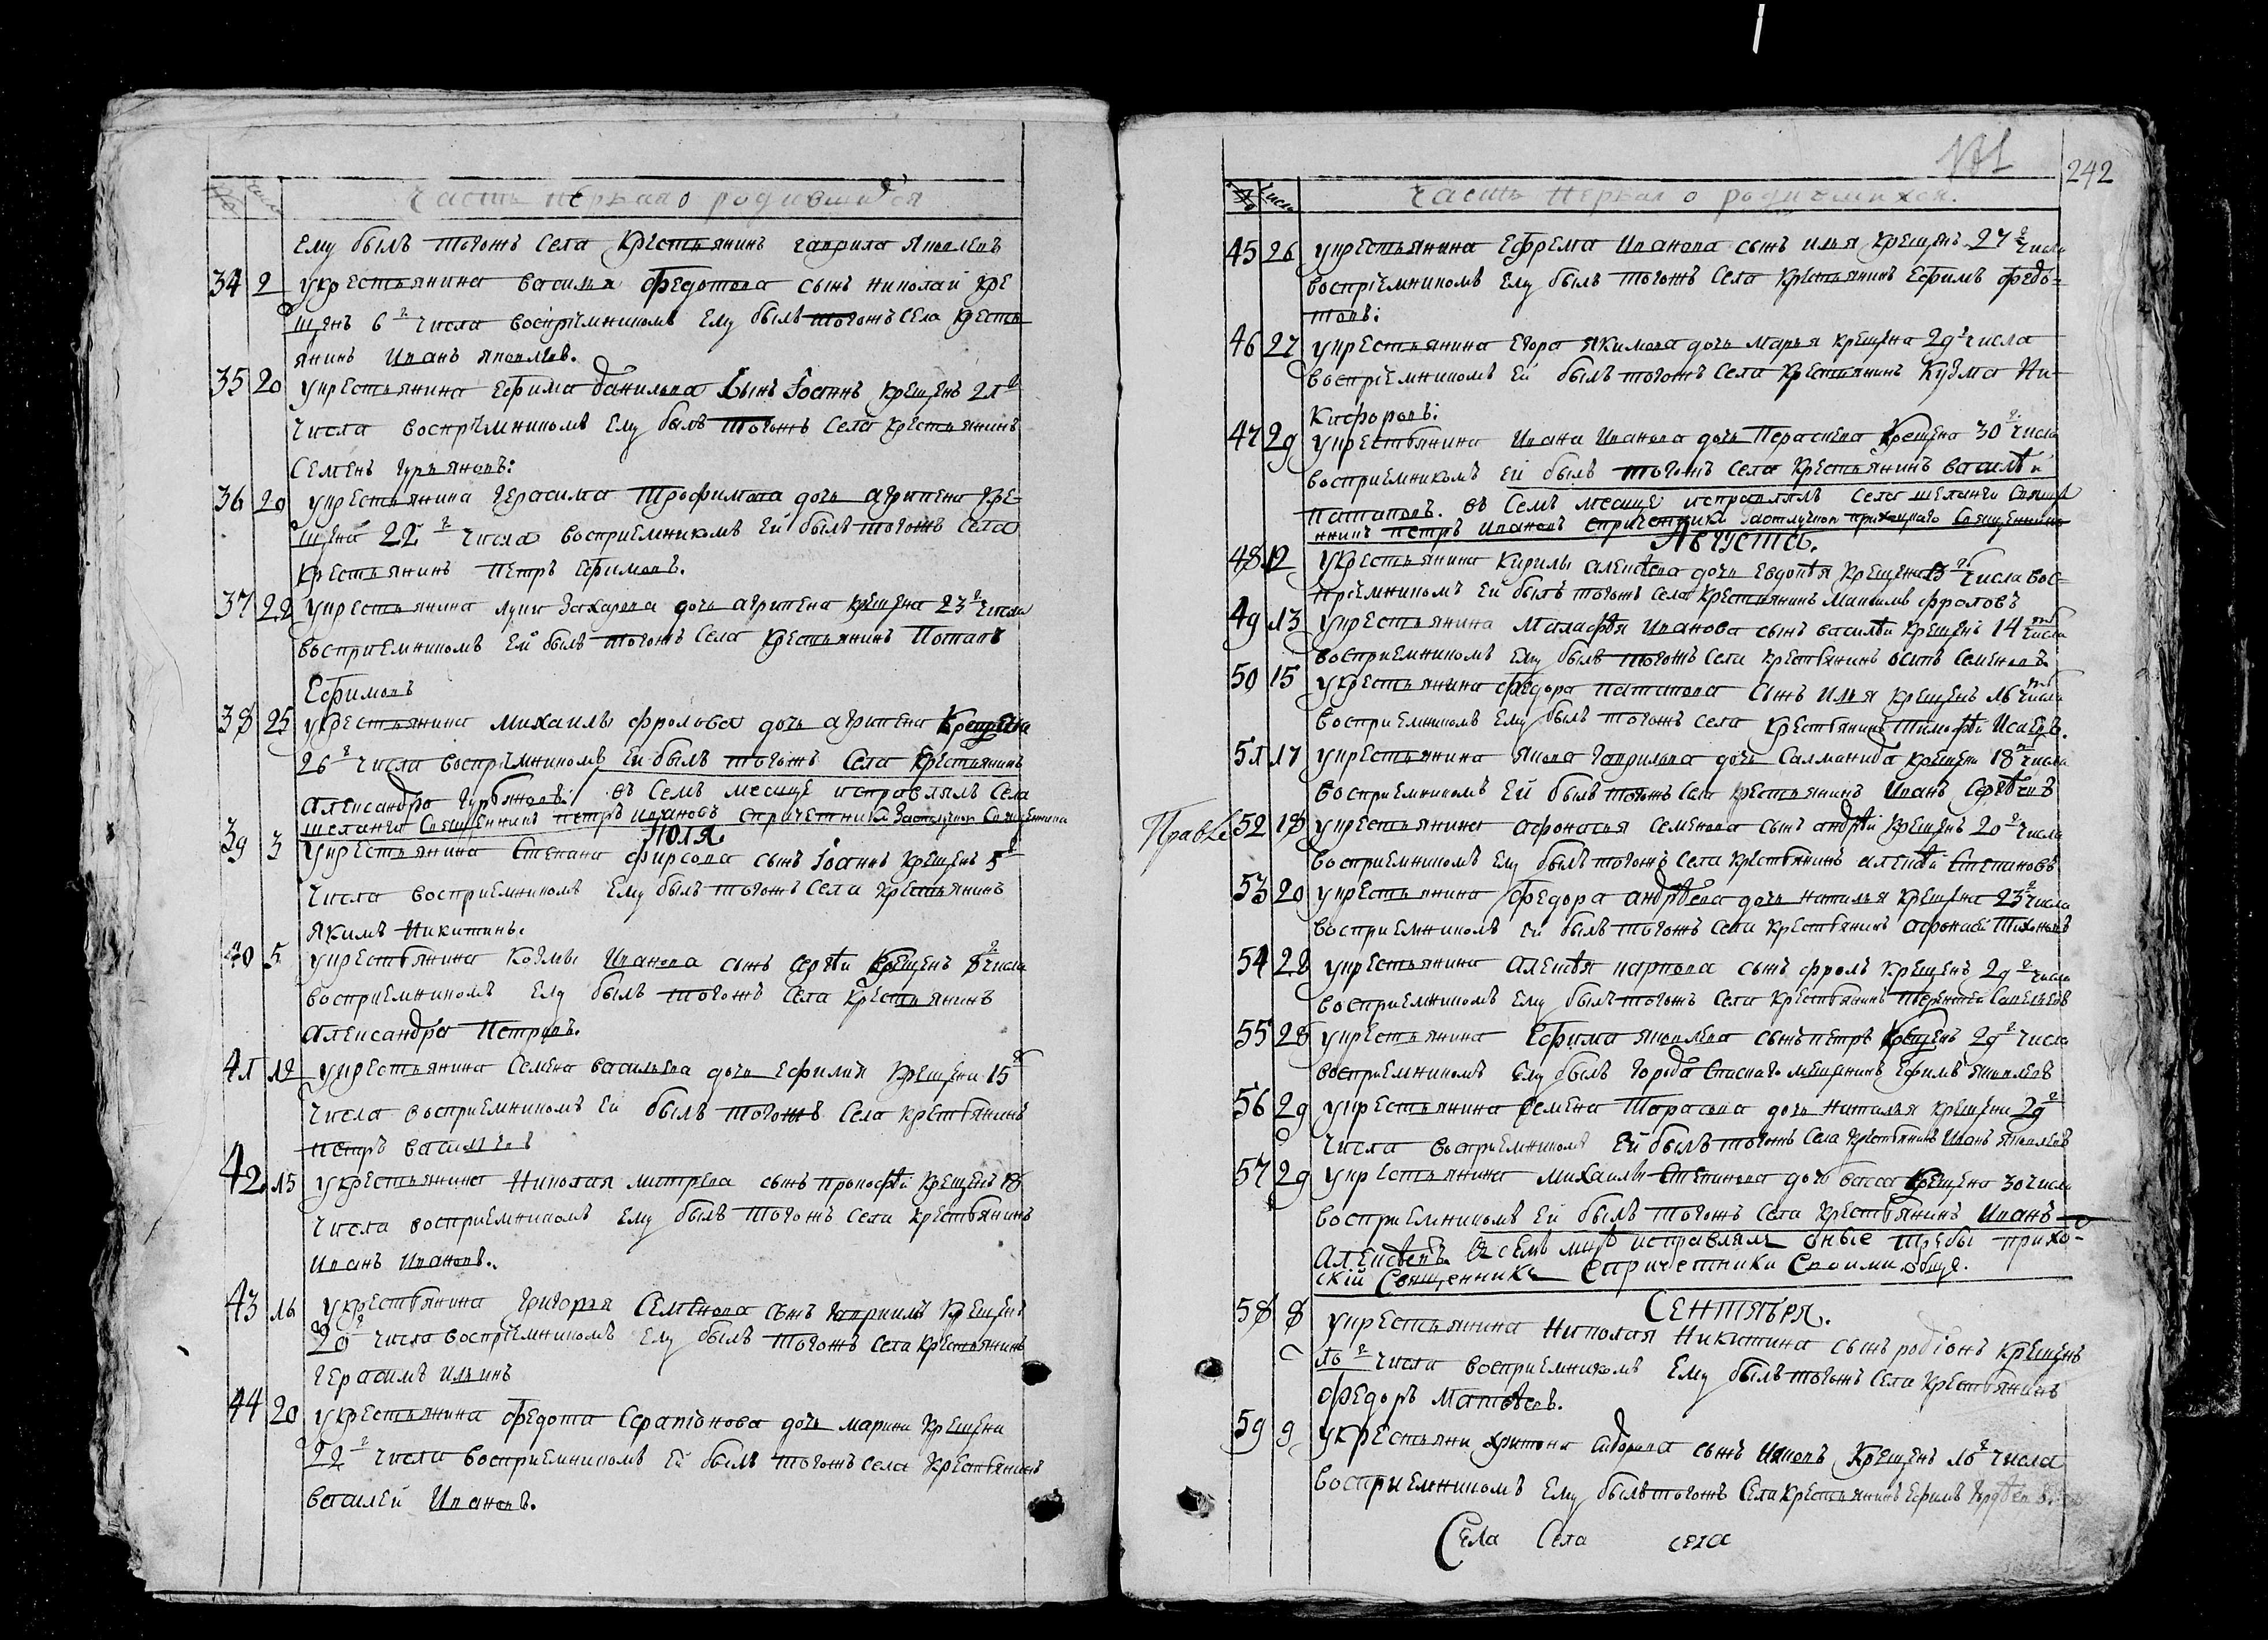 Часть перьвая о родившихся
ему былъ тогожъ села крестьянинъ гаврила яковлевъ
34 2 укрестьянина василья федотова сынъ николай кре
щенъ 6 г числа воспрiемникомъ ему былъ тогожъ села кресть
янинъ иванъ яковлевъ.
35 20 укрестьянина ефима данилова сынъ Iоаннъ крещенъ 21 г
числа воспрiемникомъ ему былъ тогожъ села крестьянинъ
семенъ гурьяновъ:
36 20 укрестьянина герасима трофимова дочь агрипена кре-
щена 22 г числа воспрiемникомъ ей былъ тогожъ села
крестьянинъ петръ ефимовъ.
37 22 укрестьянина луки захарова дочь агрипена крещена 23 г числа
воспрiемникомъ ей былъ тогожъ села крестьянинъ Потапъ
Ефимовъ
38 25 укрестьянина михаилы фролова дочь агрипена крещена
26 г числа воспрiемникомъ ей былъ тогожъ села крестьянинъ
александра гурьяновъ: въ семъ месяце исправлялъ села
шеланги священникъ петръ ивановъ спричетники
Iюля
39 3 укрестьянина степана фирсова сынъ Iоаннъ крещенъ 5 г
числа воспрiемникомъ ему былъ тогожъ села крестьянинъ
якимъ никитинъ.
40 5 укрестьянина козмы иванова сынъ сергѣй крещенъ 8 г числа
воспрiемникомъ ему былъ тогожъ села крестьянинъ
александра петровъ.
41 12 укрестьянина семена васильева дочь ефимiя крещена 15 г
числа воспрiемникомъ ей былъ тогожъ села крестьянинъ
петръ васильевъ
42 15 укрестьянина николая митрева сынъ прокофѣй крещенъ 18
числа воспрiемникомъ ему былъ тогожъ села крестьянинъ
иванъ ивановъ.
43 16 укрестьянина григорья семенова сынъ гаврiилъ крещенъ
20 г числа воспрiемникомъ ему былъ тогожъ села крестьянинъ
герасимъ ильинъ
44 20 укрестьянина федота серапiонова дочь марина крещена
22 г числа воспрiемникомъ ей былъ тогожъ села крестьянинъ
василей ивановъ.
242
Часть перьвая о родившихся.
45 26 укрестьянина ефрема иванова сынъ илья крещенъ 27 г числа
воспрiемникомъ ему былъ тогожъ села крестьянинъ ефимъ федо=
товъ:
46 27 укрестьянина егора якимова дочь марья крещена 29 г числа
воспрiемникомъ ей былъ тогожъ села крестьянинъ кузма ни-
кифоровъ:
47 29 укрестьянина ивана иванова дочь параскева крещена 30 г числа
воспрiемникомъ ей былъ тогожъ села крестьянинъ василѣй
патаповъ. въ семъ месяце исправлялъ села шеланги священ
никъ петръ ивановъ спричетники
Августа.
48 12 укрестьянина кирилы алексѣева дочь евдокѣя крещена 13 г числа вос-
прiемникомъ ей былъ тогожъ села крестьянинъ максимъ фроловъ
49 13 укрестьянина малафѣя иванова сынъ василѣй крещенъ 14 числа
воспрiемникомъ ему былъ тогожъ села крестьянинъ осипъ семеновъ
50 15 укрестьянина федора патапова сынъ илья крещенъ 16 числа
воспрiемникомъ ему былъ тогожъ села крестьянинъ тимофѣй исаевъ.
51 17 укрестьянина якова гаврилова дочь салманида крещена 18 числа
воспрiемникомъ ей былъ тогожъ села крестьянинъ иванъ сергѣевъ
52 18 укрестьянина афонасья семенова сынъ андрѣй крещенъ 20 г числа
воспрiемникомъ ему былъ тогожъ села крестьянинъ алексѣй степановъ
53 20 укрестьянина федора андрѣева дочь наталья крещена 23 г числа
воспрiемникомъ ей былъ тогожъ села крестьянинъ афонасей тихоновъ
54 28 укрестьянина алексѣя карпова сынъ фролъ крещенъ 29 г числа
воспрiемникомъ ему былъ тогожъ села крестьянинъ савельевъ
55 28 укрестьянина ефима яковлева сынъ петръ крещенъ 29 г числа
воспрiемникомъ ему былъ города спаскаго мещанинъ ефимъ яковлевъ
56 29 укрестьянина семена тарасова дочь наталья крещена 29 г
числа воспрiемникомъ ей былъ тогожъ села крестьянинъ иванъ яковлевъ
57 29 укрестьянина михаилы степанова дочь васса крещена 30 числа
воспрiемникомъ ей былъ тогожъ села крестьянинъ иванъ
алексѣевъ. въ семъ мцѣ исправлялъ оные требы прихо-
скiй священникъ спричетники своими обще.
Сентября.
58 8 укрестьянина николая никитина сынъ родiонъ крещенъ
10 г числа воспрiемникомъ ему былъ тогожъ села крестьянинъ
федоръ матвѣевъ.
59 9 укрестьяни харитона сидорова сынъ иаковъ крещенъ 10 г числа
воспрiемникомъ ему былъ тогожъ села крестьянинъ ефимъ
Села Села села